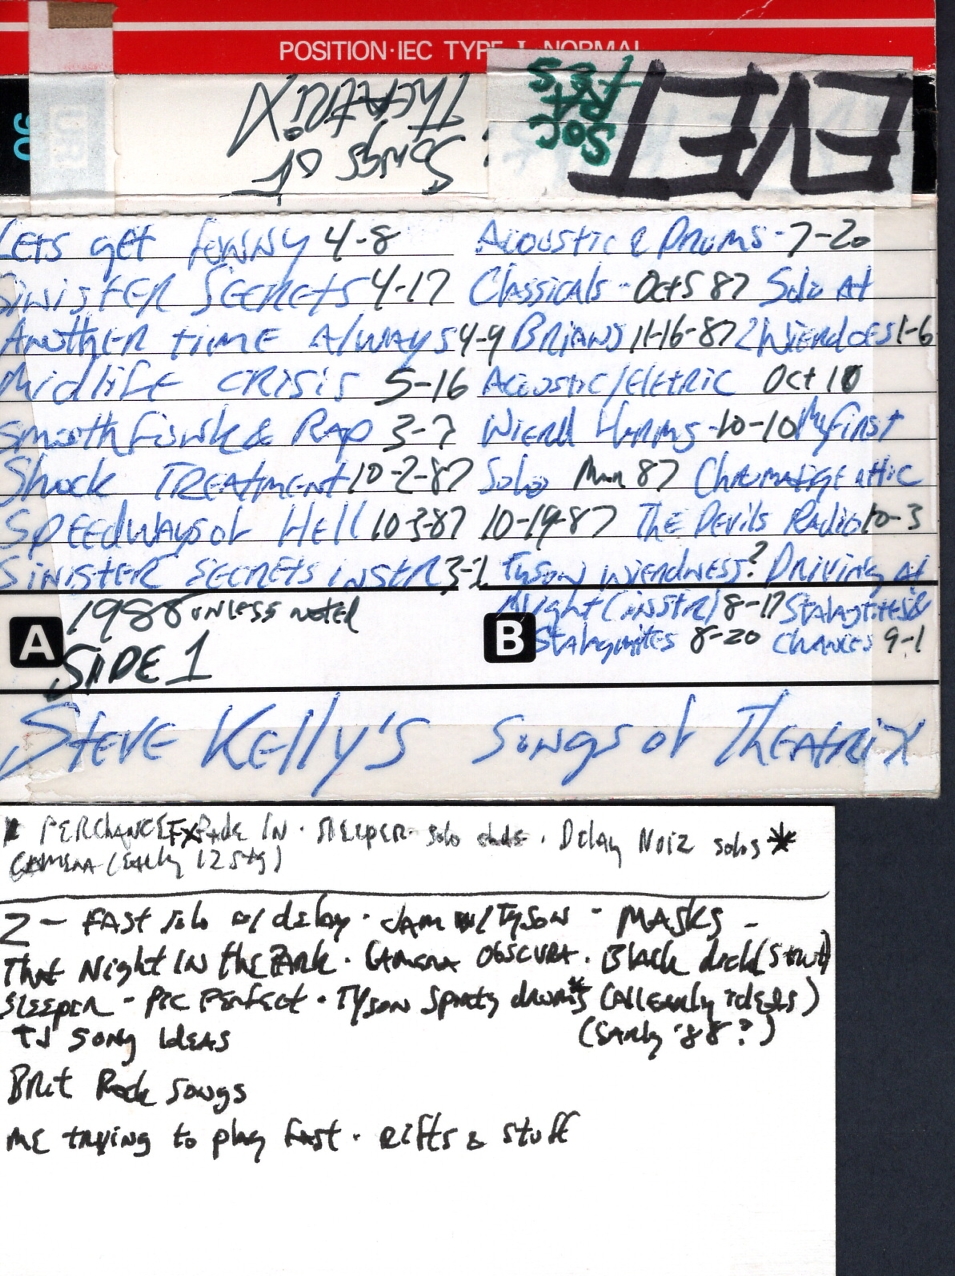 POSITION·IEC TYPE I NORMAL
90
Songs of
THEATRIX
Lets get funny 4-8
Sinister Secrets 4-17
Another time Always 4-9
Midlife crisis 5-16
Smooth Funk & Rap 3-7
Shock TREATMENT 10-2-87
Speedways of Hell 10-3-87
Sinister Secrets instr 3-1
Acoustic & Drums - 7-20
Classicals - Oct 5 87 Solo At
Brians 11-16-87 2 Wierdoes 1-6
Acoustic/Eletric Oct 10
Wierd Harms - 10-10 My First
Solo Mar 87 Chromatic attic
10-19-87 The Devils Radio 10-3
Tyson wierdness? Driving At
Night (instr) 8-17 Stalagtites &
Stalagmites 8-20 Chances 9-1
A
1988 unless noted
SIDE 1
B
Steve Kelly's Songs of Theatrix
PERCHANCE Fade IN · SLEEPER - solo ends · Delay Noiz solos *
CAMERA (Early 12 Stg)
2 - FAST solo w/ delay · JAM w/ Tyson - MASKS -
That Night IN the Park · CAMERA OBSCURA · Black
SLEEPER - Pic Perfect · Tyson Sports drums * (All early ideas)
TJ SONG IDEAS (Early '88?)
Brit Rock Songs
ME trying to play fast · Riffs & stuff